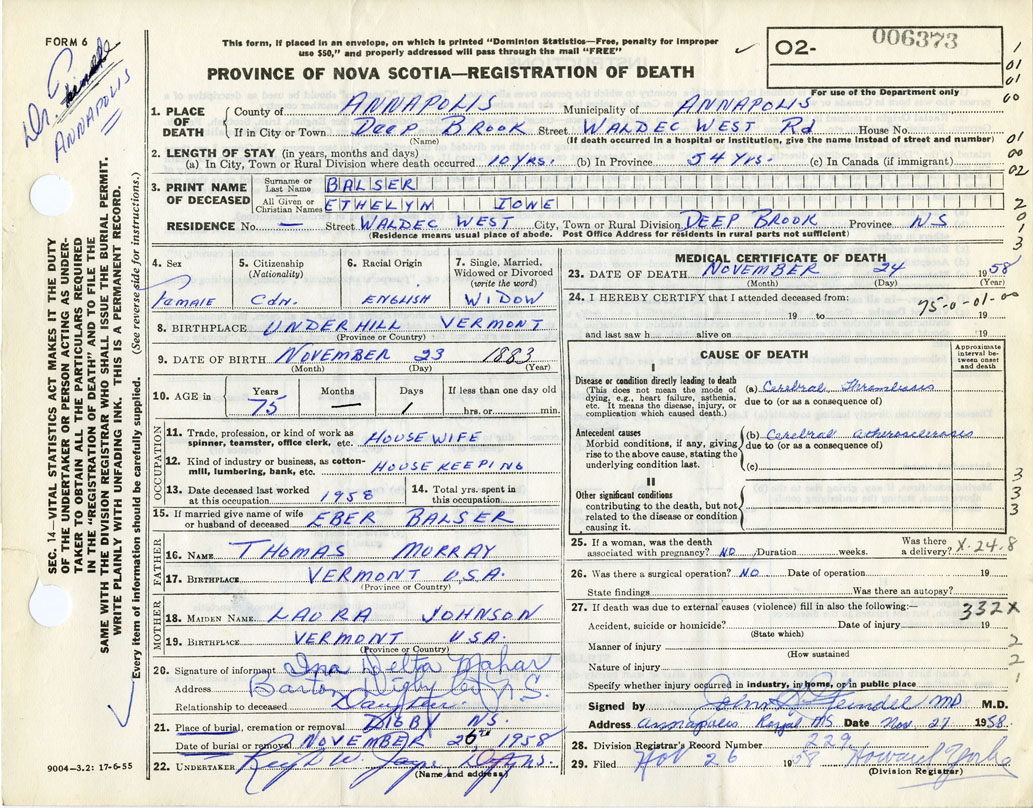 FORM 6
This form, if placed in an envelope, on which is printed "Dominion Statistics—Free, penalty for improper
use $50," and properly addressed will pass through the mail "FREE"
✓
O2- 006373
For use of the Department only
PROVINCE OF NOVA SCOTIA—REGISTRATION OF DEATH
Dr.
ANNAPOLIS
1
01
01
00
1. PLACE OF DEATH
County of ANNAPOLIS Municipality of ANNAPOLIS
If in City or Town DEEP BROOK Street WALDEC WEST Rd House No.
(Name) (If death occurred in a hospital or institution, give the name instead of street and number)
01
00
02
2. LENGTH OF STAY (in years, months and days)
(a) In City, Town or Rural Division where death occurred 10 yrs. (b) In Province 54 yrs. (c) In Canada (if immigrant)
3. PRINT NAME OF DECEASED
Surname or Last Name BALSER
All Given or Christian Names ETHELYN IONE
2
0
1
3
RESIDENCE No. — Street WALDEC WEST City, Town or Rural Division DEEP BROOK Province NS
(Residence means usual place of abode. Post Office Address for residents in rural parts not sufficient)
4. Sex
Female
5. Citizenship
(Nationality)
Cdn.
6. Racial Origin
ENGLISH
7. Single, Married, Widowed or Divorced
(write the word)
WIDOW
8. BIRTHPLACE UNDERHILL VERMONT
(Province or Country)
9. DATE OF BIRTH NOVEMBER 23 1883
(Month) (Day) (Year)
10. AGE in
Years Months Days If less than one day old
75 — 1 hrs. or min.
OCCUPATION
11. Trade, profession, or kind of work as
spinner, teamster, office clerk, etc. HOUSEWIFE
12. Kind of industry or business, as cotton-
mill, lumbering, bank, etc. HOUSE KEEPING
13. Date deceased last worked
at this occupation 1958
14. Total yrs. spent in
this occupation
15. If married give name of wife
or husband of deceased EBER BALSER
FATHER
16. NAME THOMAS MURRAY
17. BIRTHPLACE VERMONT U.S.A.
(Province or Country)
MOTHER
18. MAIDEN NAME LAURA JOHNSON
19. BIRTHPLACE VERMONT USA.
(Province or Country)
20. Signature of informant Ina Delta Mahar
Address Barton Digby Co N.S.
Relationship to deceased Daughter
21. Place of burial, cremation or removal DIGBY NS.
Date of burial or removal NOVEMBER 26 1958
22. UNDERTAKER
(Name and address)
MEDICAL CERTIFICATE OF DEATH
23. DATE OF DEATH NOVEMBER 24 1958
(Month) (Day) (Year)
24. I HEREBY CERTIFY that I attended deceased from:
75-0-01-00
19 to 19
and last saw h alive on 19
CAUSE OF DEATH
Approximate interval between onset and death
I
Disease or condition directly leading to death
(This does not mean the mode of
dying, e.g., heart failure, asthenia,
etc. It means the disease, injury, or
complication which caused death.)
(a) Cerebral Thrombosis
due to (or as a consequence of)
Antecedent causes
Morbid conditions, if any, giving
rise to the above cause, stating the
underlying condition last.
(b) Cerebral Atherosclerosis
due to (or as a consequence of)
(c)
II
Other significant conditions
contributing to the death, but not
related to the disease or condition
causing it.
3
3
3
25. If a woman, was the death
associated with pregnancy? NO Duration weeks. Was there a delivery?
X-24-8
26. Was there a surgical operation? NO Date of operation 19
State findings Was there an autopsy?
27. If death was due to external causes (violence) fill in also the following:—
332X
Accident, suicide or homicide? Date of injury 19
(State which)
Manner of injury
(How sustained
Nature of injury
2
2
1
Specify whether injury occurred in industry, in home, or in public place
Signed by MD M.D.
Address Annapolis Royal NS Date Nov. 27 1958.
28. Division Registrar's Record Number 229
29. Filed Nov 26 1958 Howard
(Division Registrar)
SEC. 14—VITAL STATISTICS ACT MAKES IT THE DUTY
OF THE UNDERTAKER OR PERSON ACTING AS UNDER-
TAKER TO OBTAIN ALL THE PARTICULARS REQUIRED
IN THE "REGISTRATION OF DEATH" AND TO FILE THE
SAME WITH THE DIVISION REGISTRAR WHO SHALL ISSUE THE BURIAL PERMIT.
WRITE PLAINLY WITH UNFADING INK. THIS IS A PERMANENT RECORD.
Every item of information should be carefully supplied. (See reverse side for instructions.)
9004—3.2: 17-6-55